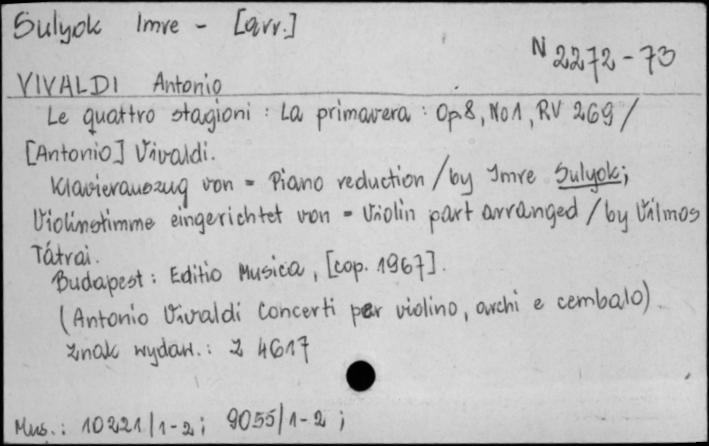 Sulyok Imre - [arr.]
N 2272-73
VIVALDI Antonio
Le quattro stagioni : La primavera : Op.8, No1, RV 269 /
[Antonio] Vivaldi.
Klavierauszug von = Piano reduction / by Imre Sulyok;
Violinstimme eingerichtet von = Violin part arranged / by Vilmos
Tátrai.
Budapest : Editio Musica, [cop. 1967].
(Antonio Vivaldi Concerti per violino, archi e cembalo).
Znak wydaw. : Z 4617
Mus.: 10221/1-2 ; 9055/1-2 ;